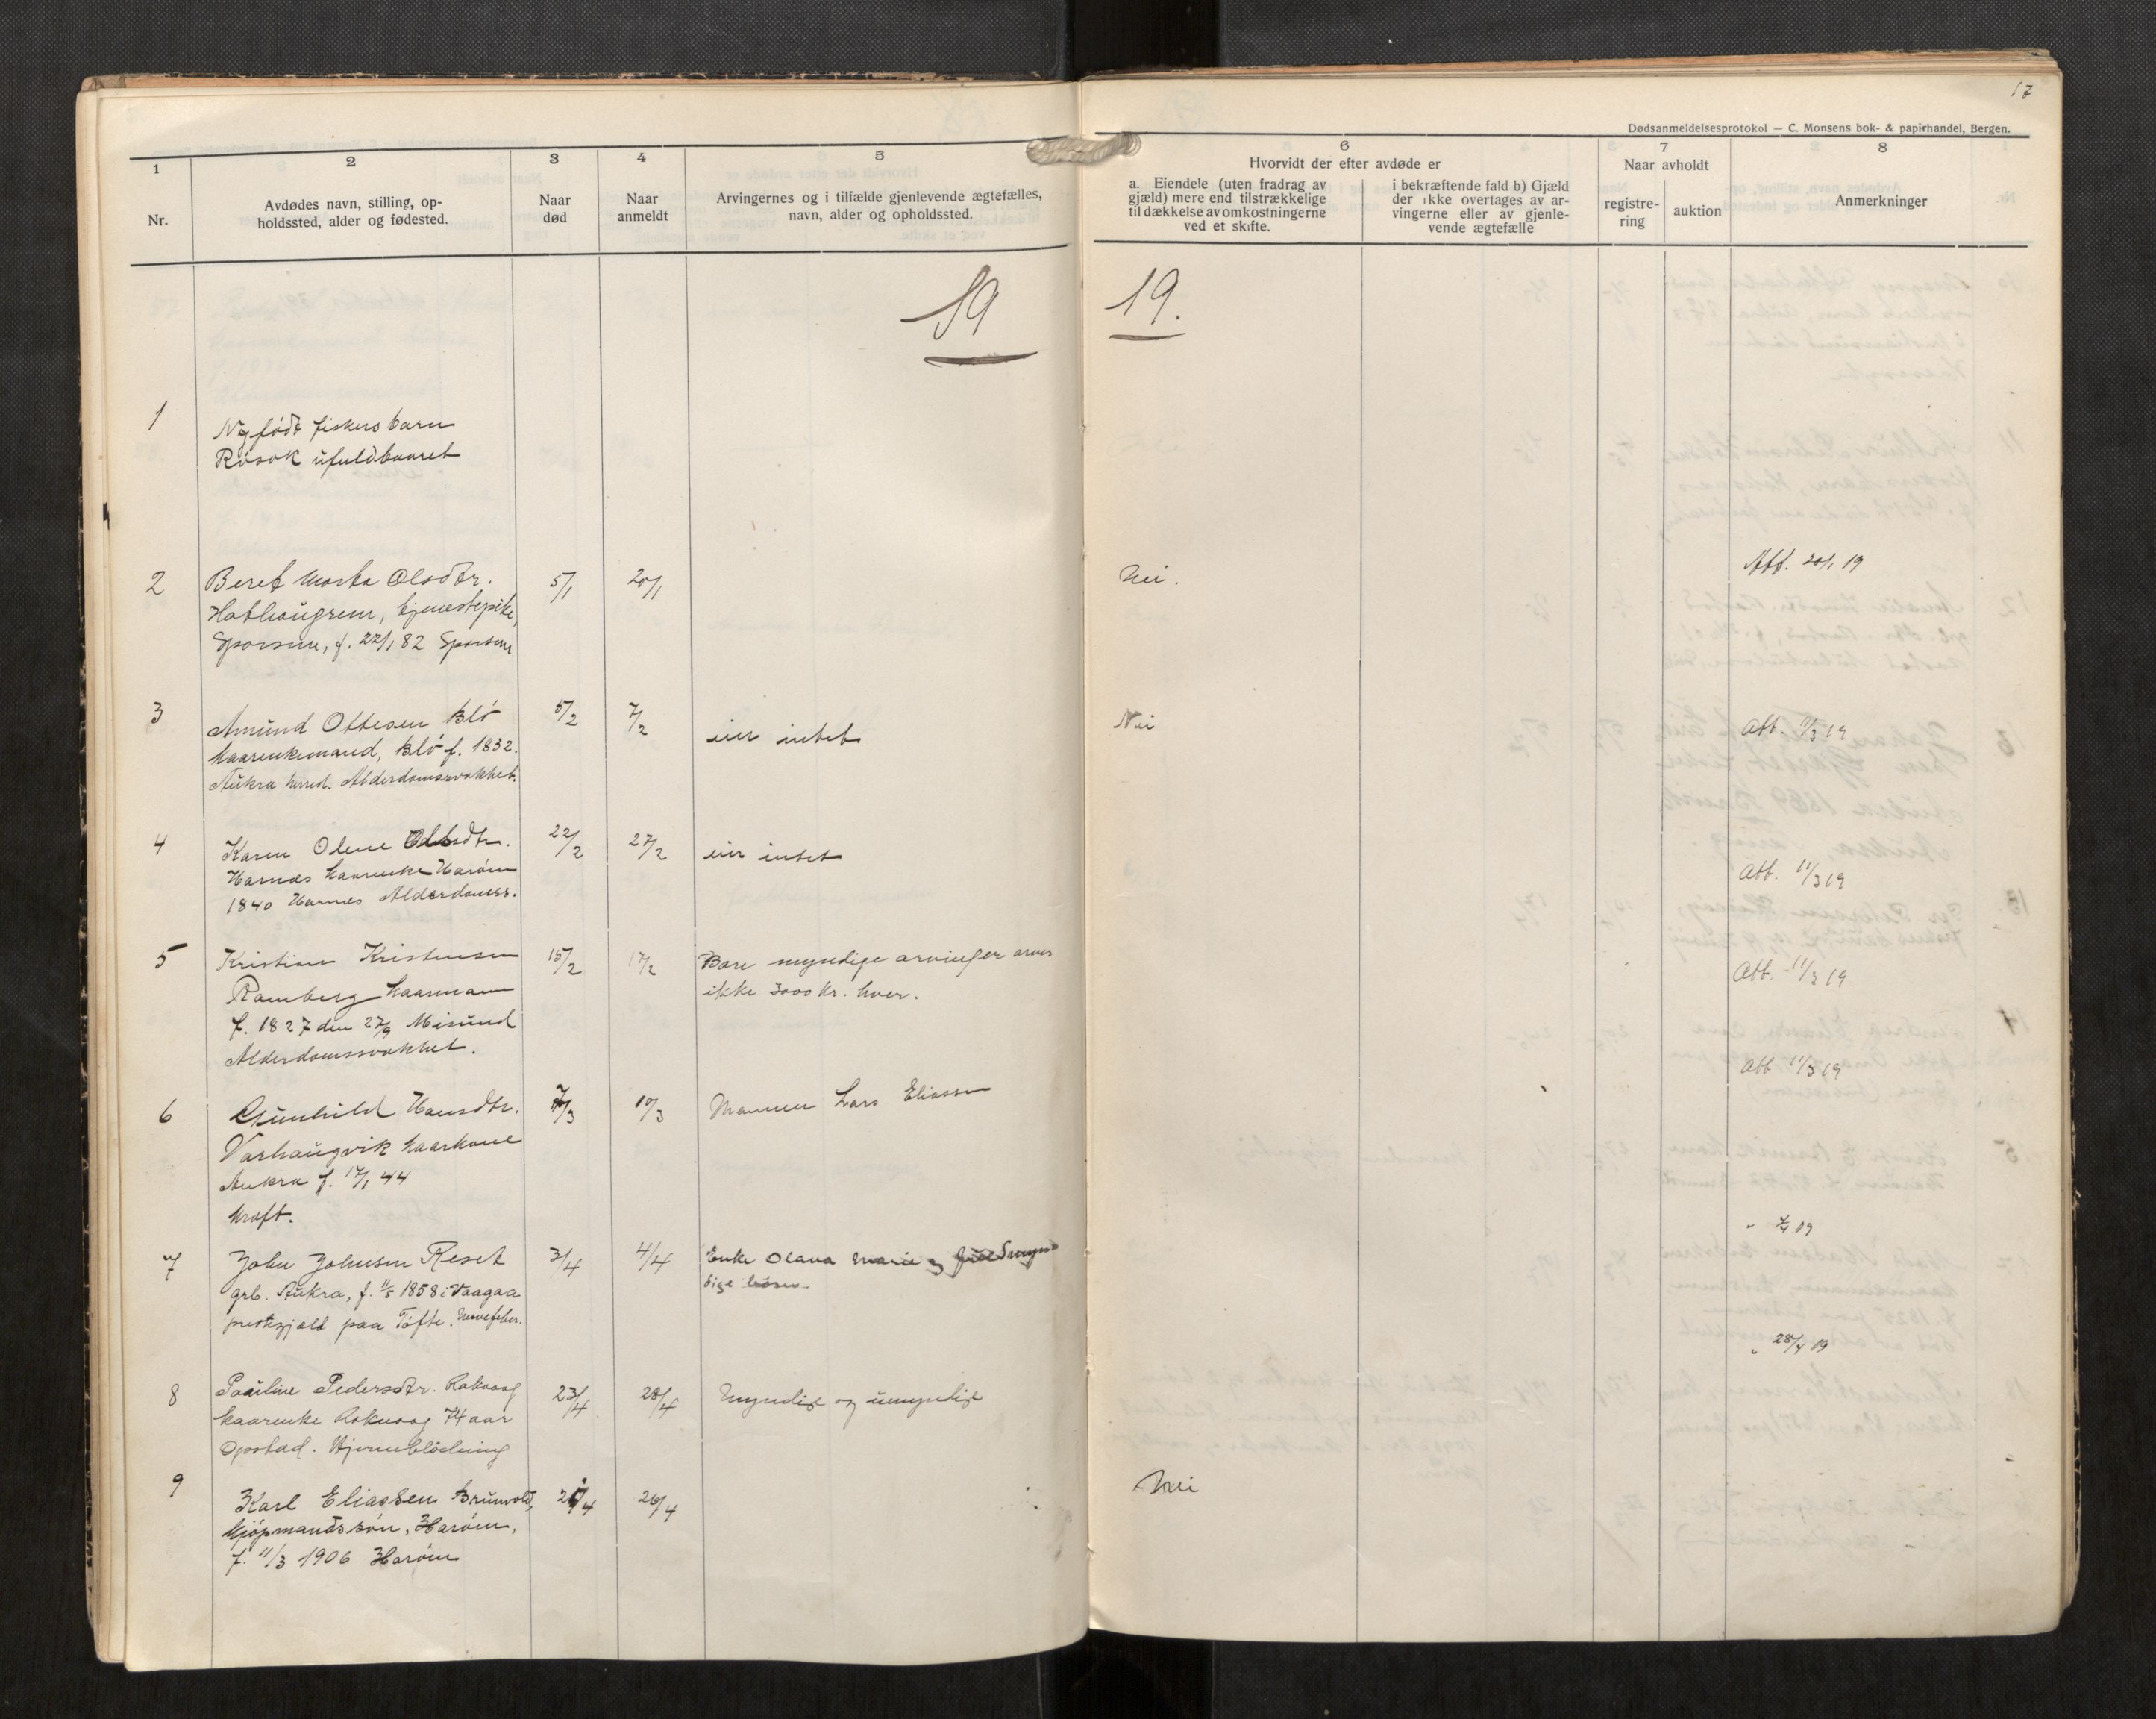 17
Dødsanmeldelsesprotokol — C. Monsens bok- & papirhandel, Bergen.
1
Nr.
2
Avdødes navn, stilling, op-
holdssted, alder og fødested.
3
Naar
død
4
Naar
anmeldt
5
Arvingernes og i tilfælde gjenlevende ægtefælles,
navn, alder og opholdssted.
6
Hvorvidt der efter avdøde er
a. Eiendele (uten fradrag av
gjæld) mere end tilstrækkelige
til dækkelse av omkostningerne
ved et skifte.
i bekræftende fald b) Gjæld
der ikke overtages av ar-
vingerne eller av gjenle-
vende ægtefælle
7
Naar avholdt
registre-
ring
auktion
8
Anmerkninger
19
19.
1
Nyfødt fiskers barn
Røsok ufuldbaaret
2 Beret Marta Olsdtr. 5/1 20/1 Nei. Att. 20/1 19
tjenestepike,
f. 22/1 82
3 Amund Ottesen Blø 5/2 7/2 eier intet Nei Att. 11/3 19
kaarenkemand, Blø f. 1832.
Aukra herred. Alderdomssvakhet.
4 Karen Oline Olsdtr. 22/2 27/2 eier intet Att. 11/3 19
Harnes kaarenke Harøen
1840 Harnes Alderdomss.
5 Kristian Kristensen 15/2 17/2 Bare myndige arvinger arver Att. 11/3 19
Ramberg kaarmann ikke 3000 kr. hver.
f. 1827 den 27/9 Misund
Alderdomssvakhet.
6 Gunhild Hansdtr. 7/3 10/3 Mannen Lars Eliassen Att 11/3 19
Varhaugvik kaarkone
Aukra f. 17/1 44
kræft.
7 John Johnsen Reset 3/4 4/4 Enke Olava Marie og fuldmyn- " 7/4 19
grb. Aukra, f. 11/5 1858 i Vaagaa dige børn.
prestegjæld paa Tofte. Nervefeber.
8 Pauline Pedersdtr. Rakvaag 23/4 28/4 Myndige og umyndige " 28/4 19
kaarenke Rakvaag 74 aar
Opstad. Hjerneblødning
9 Karl Eliassen Brunvold, 26/4 Nei
kjøpmandssøn, Harøen,
f. 11/3 1906 Harøen